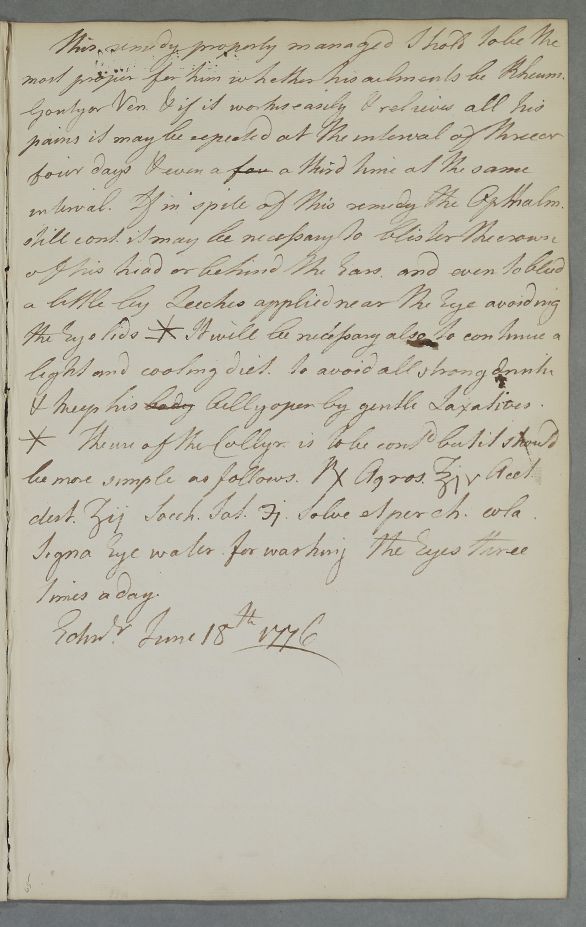 This remedy properly managed I hold to be the
most proper for him whether his ailments be Rheum.
Gouty or Ven. & if it works easily & relieves all his
pains it may be repeated at the interval of three or
four days & even a few a third time at the same
interval. If in spite of this remedy the Ophthalm.
still cont. it may be necessary to blister the crown
of his head or behind the Ears. and even to bleed
a little by Leeches applied near the Eye avoiding
the Eye lids ⁎ It will be necessary also to continue a
light and cooling diet. to avoid all strong drink
& keep his body belly open by gentle Laxatives.
⁎ The use of the Collyr. is to be contd but it should
be more simple as follows. ℞ Aq ros. ℥iv Acet
dest. ℥ij Sacch. Sat. ʒj. Solve et per ch. cola.
Signa Eye water for washing the Eyes three
times a day.
Edinr June 18th 1776
5